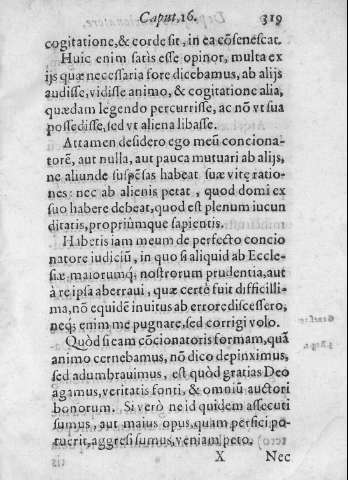 Caput, 16. 319
cogitatione, & corde sit, in ea cõsenescat.
Huic enim satis esse opinor, multa ex
ijs quæ necessaria fore dicebamus, ab alijs
audisse, vidisse animo, & cogitatione alia,
quædam legendo percurrisse, ac nõ vt sua
possedisse, sed vt aliena libasse.
Attamen desidero ego meũ conciona-
torẽ, aut nulla, aut pauca mutuari ab alijs,
ne aliunde suspẽsas habeat suæ vitę ratio-
nes: nec ab alienis petat, quod domi ex
suo habere debeat, quod est plenum iucun
ditatis, propriùmque sapientis.
Habetis iam meum de perfecto concio
natore iudiciũ, in quo si aliquid ab Eccle-
siæ maiorumq́; nostrorum prudentia, aut
à re ipsa aberraui, quæ certè fuit difficilli-
ma, nõ equidẽ inuitus ab errore discessero,
neq́; enim me pugnare, sed corrigi volo.
Quòd si eam cõcionatoris formam, quã
animo cernebamus, nõ dico depinximus,
sed adumbrauimus, est quòd gratias Deo
agamus, veritatis fonti, & omniũ auctori
bonorum. Si verò ne id quidem assecuti
sumus, aut maius opus, quam perfici po-
tuerit, aggresi sumus, veniam peto.
X Nec